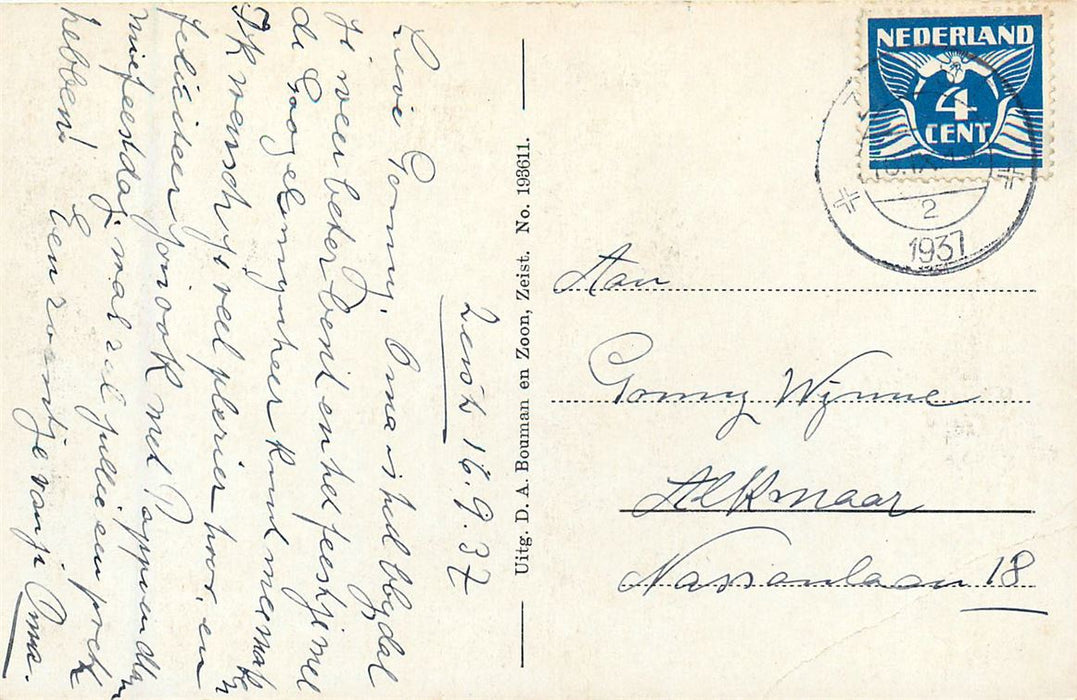 Zeist 16.9.37
Lieve Gonny, Oma is heel bly dat
je weer beter bent en het feestje met
de Googelmynheer kunt meemaken
Ik wensch je veel plezier hoor, en
feliciteer jou ook met Pappie en den
feestdag, wat zul jullie een pret
hebben! Een zoentje van je Oma.
Uitg. D. A. Bouman en Zoon, Zeist. No. 193611.
NEDERLAND
4
CENT
2
1937
Aan
Gonny Wynne
Alkmaar
Nassaulaan 18